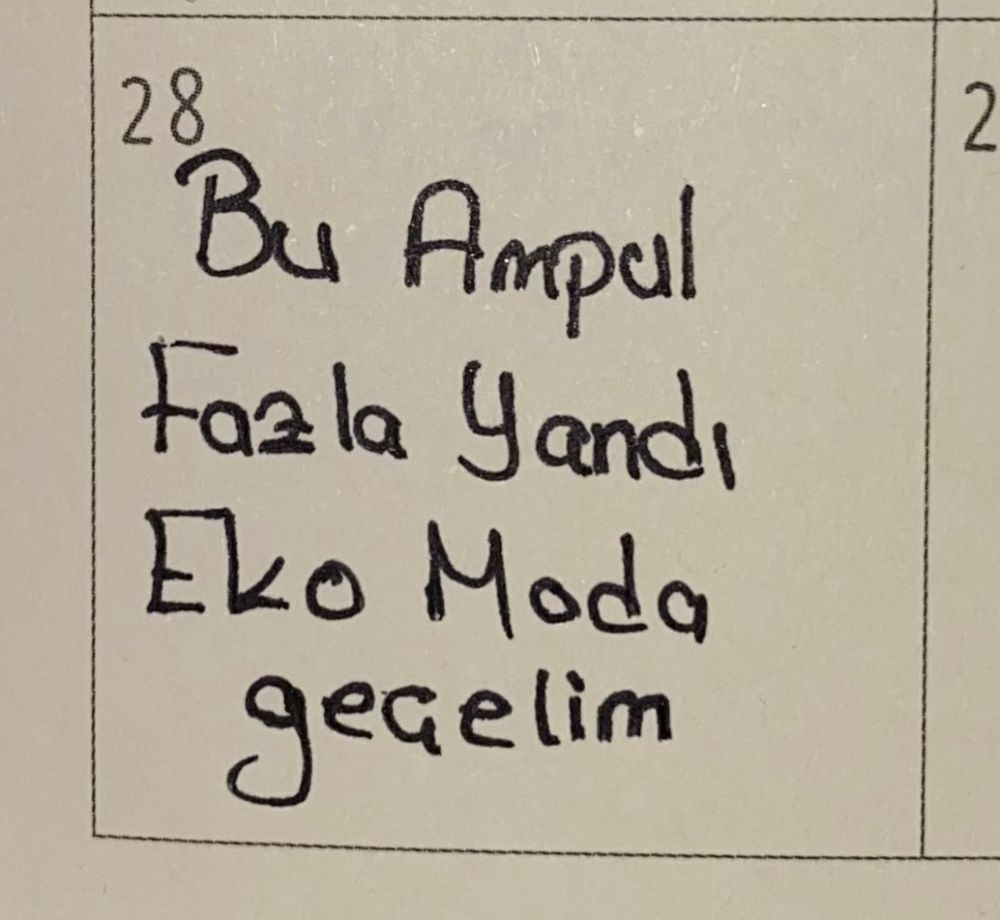 28
2
Bu Ampul
Fazla Yandı
Eko Moda
geçelim